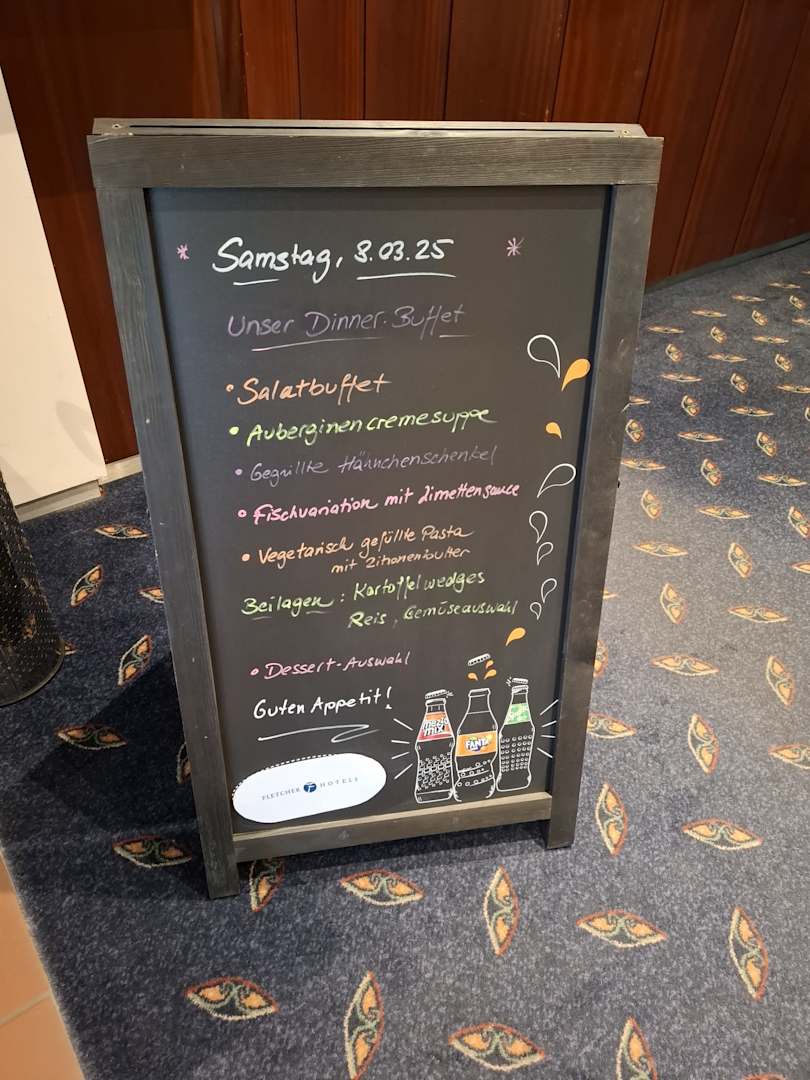 Samstag, 8.03.25
Unser Dinner-Buffet
Salatbuffet
Auberginencremesuppe
Gegrillte Hähnchenschenkel
Fischvariation mit Limettensauce
Vegetarisch gefüllte Pasta
mit Zitronenbutter
Beilagen: Kartoffelwedges
Reis, Gemüseauswahl
Dessert-Auswahl
Guten Appetit!
mezzo
mix
FANTA
FLETCHER HOTELS